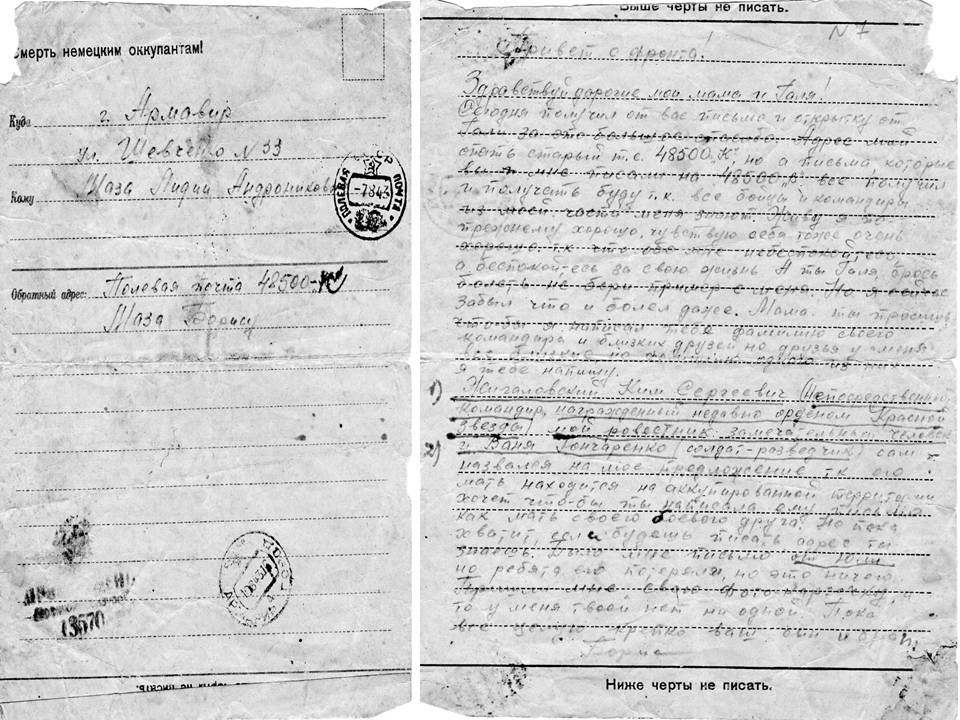 Смерть немецким оккупантам!
Куда г. Армавир
ул. Шевченко N 33
Кому Шаза Лидии Андрониковне
ПОЛЕВАЯ ПОЧТА
-7.8.43
Обратный адрес: Полевая почта 48500-К
Шаза Борису
13570
Выше черты не писать.
N 7
Привет с фронта!
Здравствуй дорогие мои мама и Галя!
Сегодня получил от вас письмо и открытку от
Гали за это большое спасибо. Адрес мой
опять старый т.е. 48500.К, но а письма которые
вы мне писали на 48500 все получил
и получать буду т.к. все бойцы и командиры
из моей части меня знают. Живу я по
прежнему хорошо, чувствую себя тоже очень
хорошо т.к. что обо мне не беспокойтесь,
а беспокойтесь за свою жизнь А ты Галя, брось
болеть не бери пример с меня. Но я сейчас
забыл что и болел даже. Мама ты просишь
что-бы я написал тебе фамилию своего
командира и близких друзей но друзья у меня
все близкие но
я тебе напишу.
1) Жигаловский Ким Сергеевич (Непосредственный
командир, награжденный недавно орденом Красной
Звезды) мой ровестник замечательный человек
2) г. Ваня Гончаренко (солдат-разведчик) сам
назвался на мое предложение т.к. его
мать находится на аккупированной территории
хочет что-бы ты написала ему письмо
как мать своего боевого друга. Но пока
хватит, если будешь писать адрес ты
знаешь. Было мне письмо от Юли
но ребята его потеряли, но это ничего
Пришли мне свою фото-карточку, а
то у меня твоей нет ни одной. Пока
все целую крепко ваш сын и брат
Борис
Ниже черты не писать.